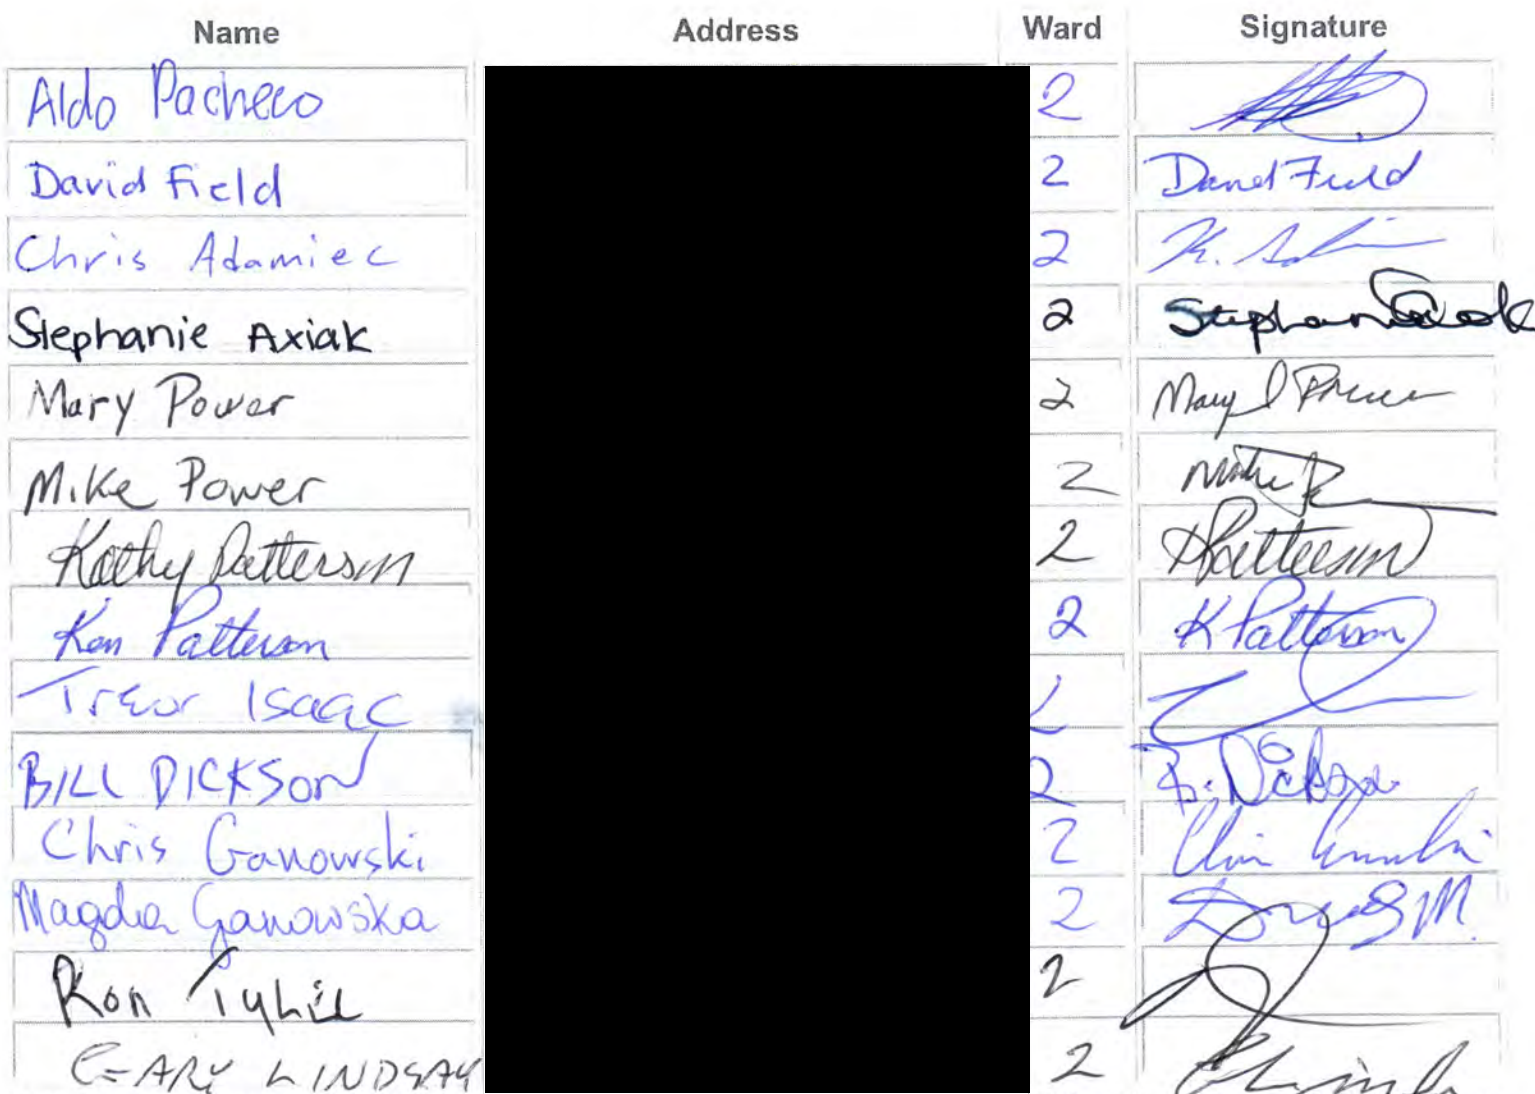 Name Address Ward Signature
Aldo Pacheco 2
David Field 2 David Field
Chris Adamiec 2
Stephanie Axiak 2 Stephanie
Mary Power 2 Mary J Power
Mike Power 2 Mike P
Kathy Patterson 2 KPatterson
Ken Patterson 2 K Patterson
Trevor Isaac 2
BILL DICKSON 2 B. Dickson
Chris Ganowski 2
Magda Ganowska 2
Ron 2
GARY LINDSAY 2